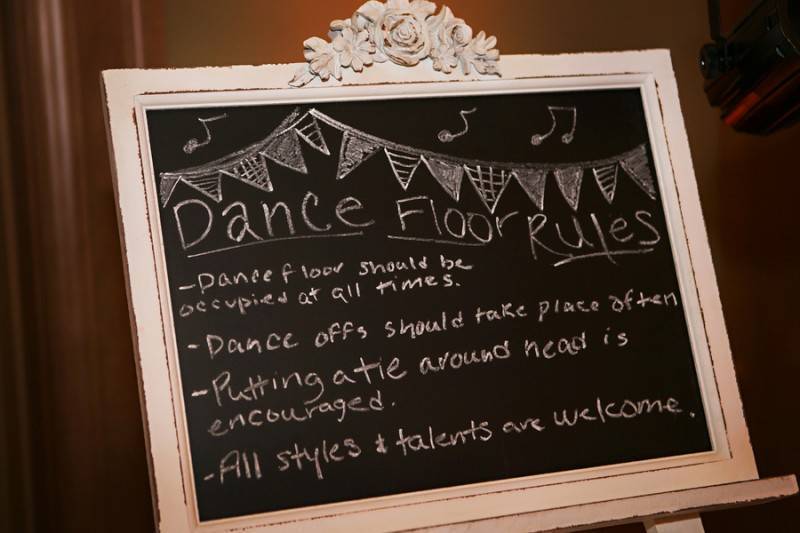 Dance Floor Rules
- Dance floor should be
occupied at all times.
- Dance offs should take place often
- Putting a tie around head is
encouraged.
- All styles & talents are welcome.